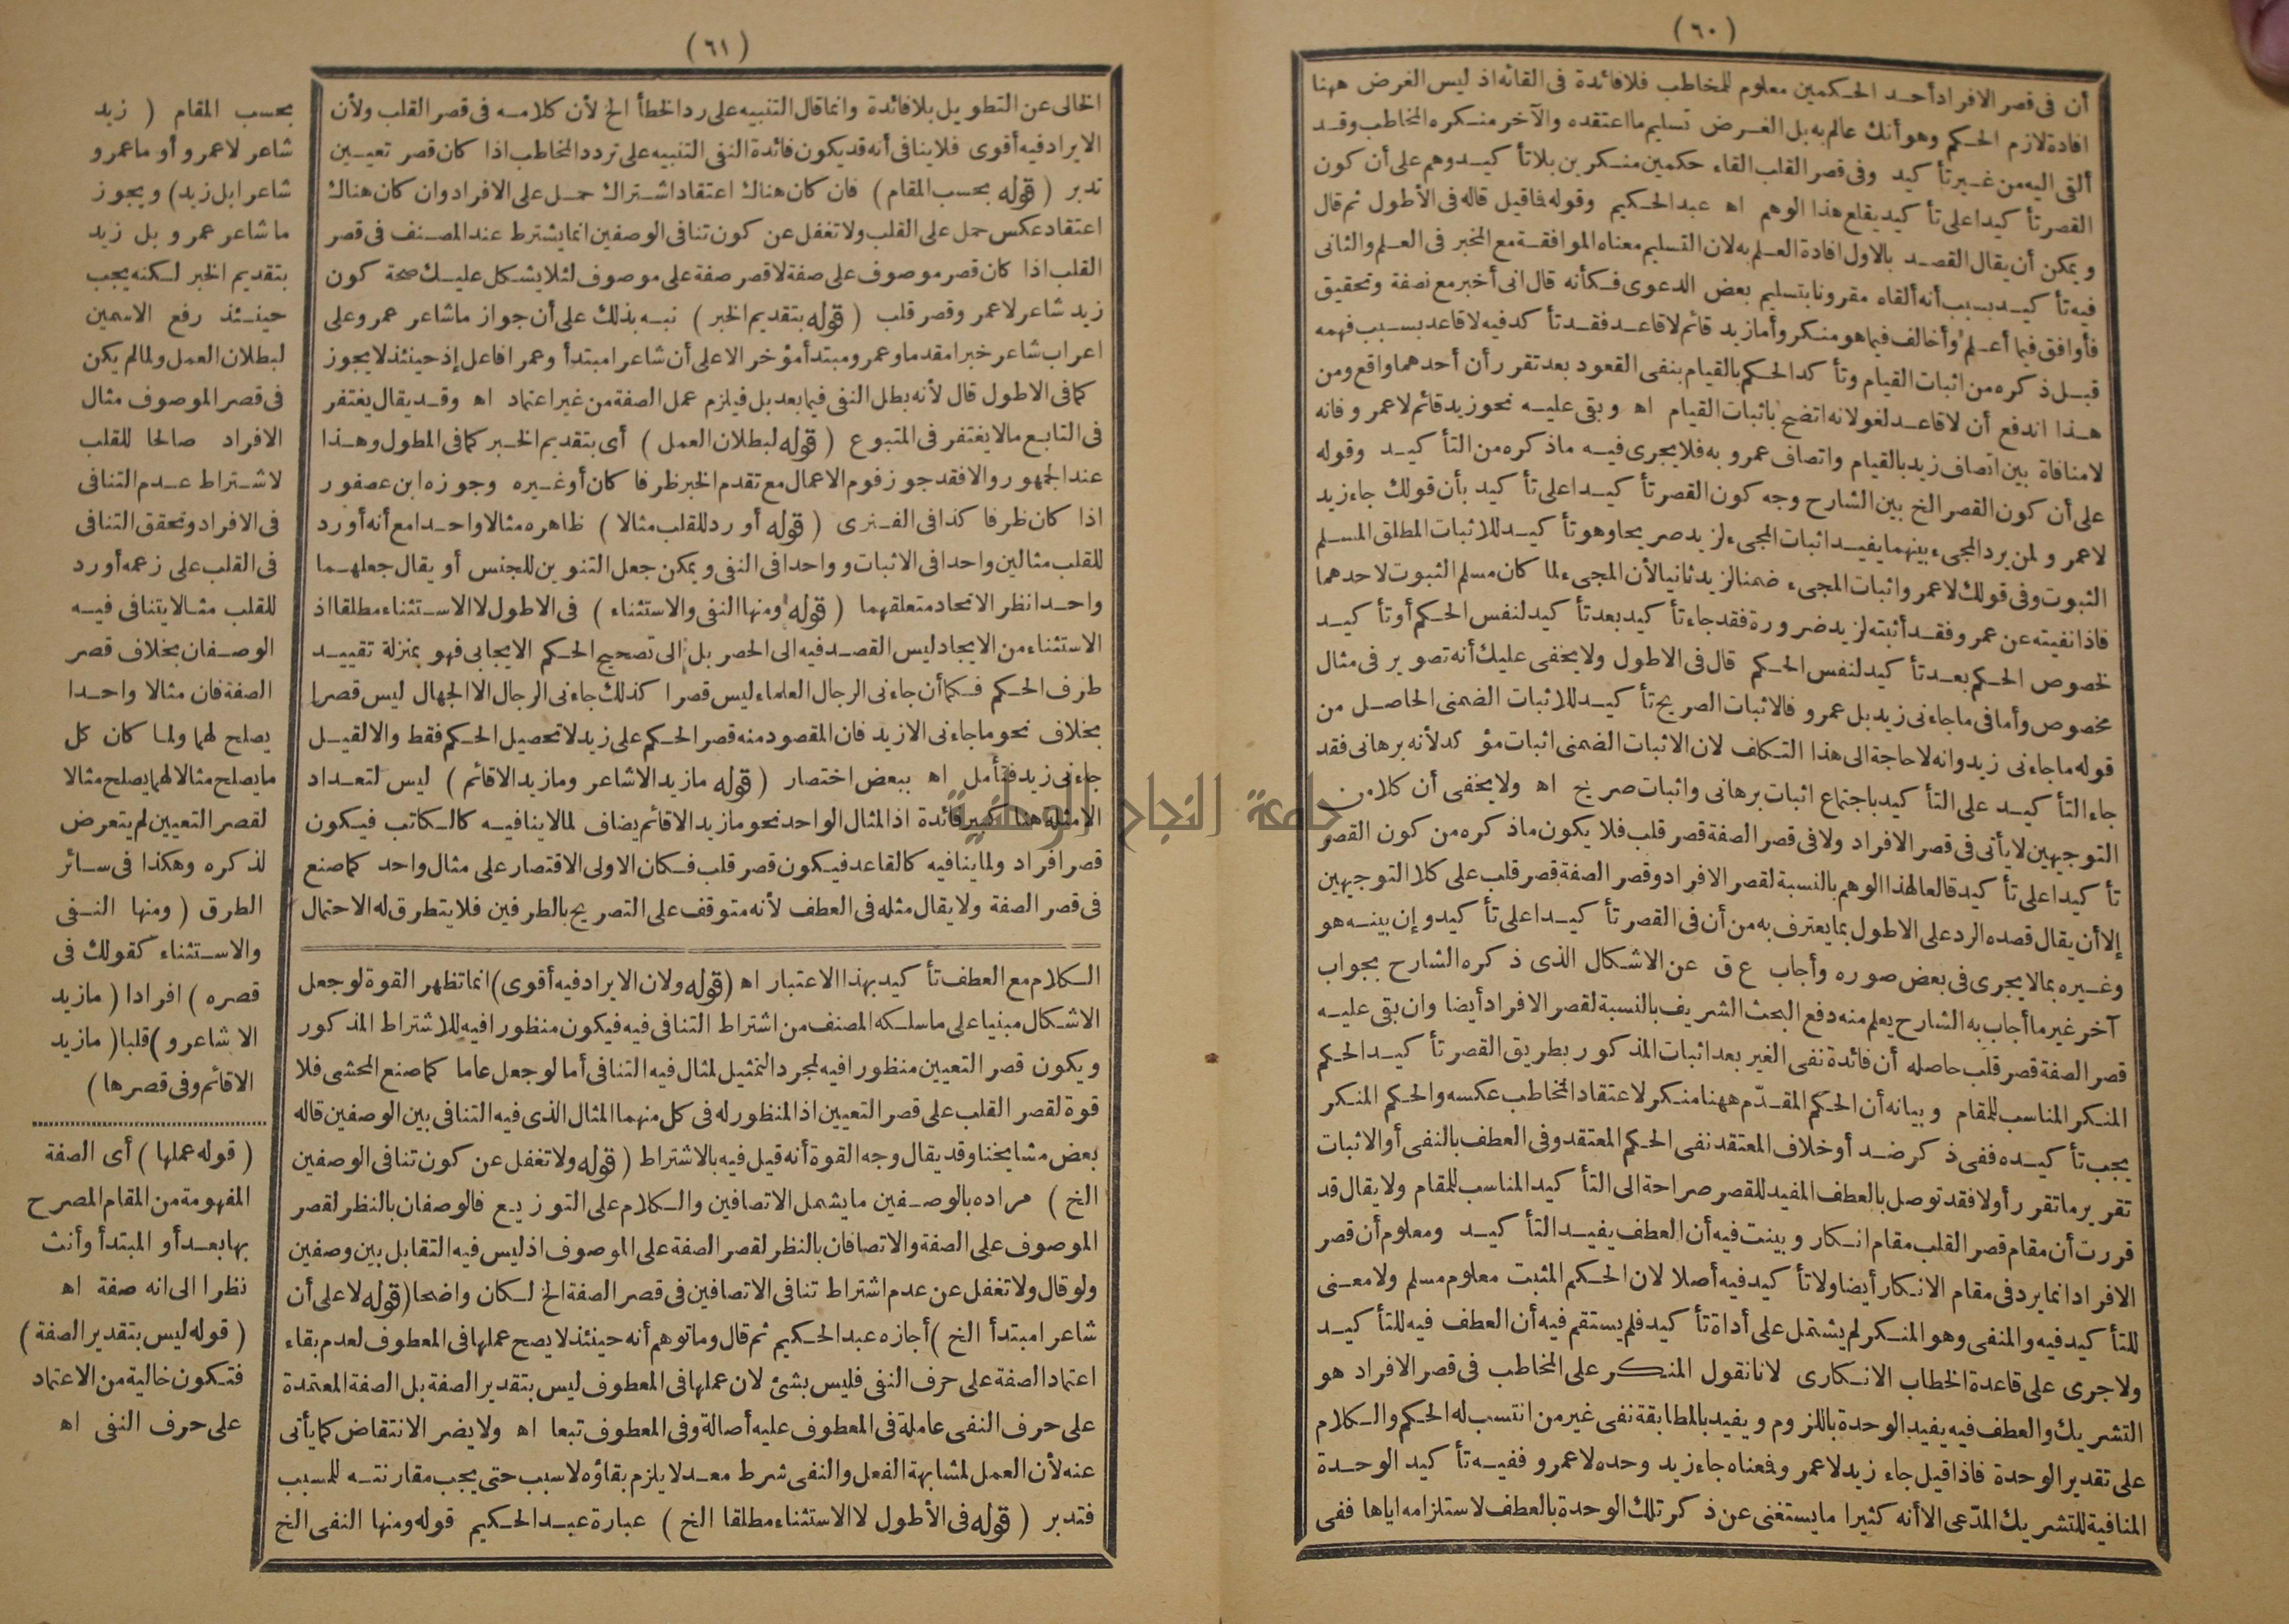 (٦٠)
أن فى قصر الافراد أحد الحكمين معلوم للمخاطب فلا فائدة فى القائه اذ ليس الغرض ههنا
افادة لازم الحكم وهو أنك عالم به بل الغرض تسليم ما اعتقده والآخر منكره المخاطب وقد
ألقى اليه من غير تأكيد وفى قصر القلب القاء حكمين منكرين بلا تأكيد وهم على أن كون
القصر تأكيدا على تأكيد يقلع هذا الوهم اه عبد الحكيم وقوله فاقيل قاله فى الأطول ثم قال
ويمكن أن يقال القصد بالاول افادة العلم به لان التسليم معناه الموافقة مع المخبر فى العلم والثانى
فيه تأكيد بسبب أنه ألقاه مقرونا بتسليم بعض الدعوى فكأنه قال انى أخبر مع نصفة وتحقيق
فأوافق فيما أعلم وأخالف فيما هو منكر وأما زيد قائم لا قاعد فقد تأكد فيه لا قاعد بسبب فهمه
قبل ذكره من اثبات القيام وتأكد الحكم بالقيام بنفى القعود بعد تقرر أن أحدهما واقع ومن
هذا اندفع أن لا قاعد لغو لانه اتضح باثبات القيام اه وبقى عليه نحو زيد قائم لا عمرو فانه
لا منافاة بين اتصاف زيد بالقيام واتصاف عمرو به فلا يجرى فيه ماذكره من التأكيد وقوله
على أن كون القصر الخ بين الشارح وجه كون القصر تأكيدا على تأكيد بأن قولك جاء زيد
لا عمرو لمن يرد المجىء بينهما يفيد اثبات المجىء لزيد صريحا وهو تأكيد للاثبات المطلق المسلم
الثبوت وفى قولك لا عمرو اثبات المجىء ضمنا لزيد ثانيا لأن المجىء لما كان مسلم الثبوت لاحدهما
فاذا نفيته عن عمرو فقد أثبته لزيد ضرورة فقد جاء تأكيد بعد تأكيد لنفس الحكم أو تأكيد
لخصوص الحكم بعد تأكيد لنفس الحكم قال فى الاطول ولا يخفى عليك أنه تصوير فى مثال
مخصوص وأما فى ماجاءنى زيد بل عمرو فالاثبات الصريح تأكيد للاثبات الضمنى الحاصل من
قوله ماجاءنى زيد وانه لا حاجة الى هذا التكلف لان الاثبات الضمنى اثبات مؤكد لأنه برهانى فقد
جاء التأكيد على التأكيد باجتماع اثبات برهانى واثبات صريح اه ولا يخفى أن كلا من
التوجيهين لا يأتى فى قصر الافراد ولا فى قصر الصفة قصر قلب فلا يكون ماذكره من كون القصر
تأكيدا على تأكيد قالعا لهذا الوهم بالنسبة لقصر الافراد وقصر الصفة قصر قلب على كلا التوجيهين
إلا أن يقال قصده الرد على الاطول بما يعترف به من أن فى القصر تأكيدا على تأكيد وإن بينه هو
وغيره بما لا يجرى فى بعض صوره وأجاب ع ق عن الاشكال الذى ذكره الشارح بجواب
آخر غير ما أجاب به الشارح يعلم منه دفع البحث الشريف بالنسبة لقصر الافراد أيضا وان بقى عليه
قصر الصفة قصر قلب حاصله أن فائدة نفى الغير بعد اثبات المذكور بطريق القصر تأكيد الحكم
المنكر المناسب للمقام وبيانه أن الحكم المقدّم ههنا منكر لاعتقاد المخاطب عكسه والحكم المنكر
يجب تأكيده ففى ذكر ضد أو خلاف المعتقد نفى الحكم المعتقد وفى العطف بالنفى أو الاثبات
تقرير ما تقرر أولا فقد توصل بالعطف المفيد للقصر صراحة الى التأكيد المناسب للمقام ولا يقال قد
قررت أن مقام قصر القلب مقام انكار وبينت فيه أن العطف يفيد التأكيد ومعلوم أن قصر
الافراد انما يرد فى مقام الانكار أيضا ولا تأكيد فيه أصلا لان الحكم المثبت معلوم مسلم ولا معنى
للتأكيد فيه والمنفى وهو المنكر لم يشتمل على أداة تأكيد فلم يستقم فيه أن العطف فيه للتأكيد
ولا جرى على قاعدة الخطاب الانكارى لانا نقول المنكر على المخاطب فى قصر الافراد هو
التشريك والعطف فيه يفيد الوحدة باللزوم ويفيد بالمطابقة نفى غير من انتسب له الحكم والكلام
على تقدير الوحدة فاذا قيل جاء زيد لا عمرو فمعناه جاء زيد وحده لا عمرو ففيه تأكيد الوحدة
المنافية للتشريك المدّعى الا أنه كثيرا ما يستغنى عن ذكر تلك الوحدة بالعطف لاستلزامه اياها ففى
(٦١)
الخالى عن التطويل بلا فائدة وانما قال التنبيه على رد الخطأ الخ لأن كلامه فى قصر القلب ولأن
الايراد فيه أقوى فلا ينافى أنه قد يكون فائدة النفى التنبيه على تردد المخاطب اذا كان قصر تعيين
تدبر (قوله بحسب المقام) فان كان هناك اعتقاد اشتراك حمل على الافراد وان كان هناك
اعتقاد عكس حمل على القلب ولا تغفل عن كون تنافى الوصفين انما يشترط عند المصنف فى قصر
القلب اذا كان قصر موصوف على صفة لا قصر صفة على موصوف لئلا يشكل عليك صحة كون
زيد شاعر لا عمرو قصر قلب (قوله بتقديم الخبر) نبه بذلك على أن جواز ما شاعر عمرو على
اعراب شاعر خبرا مقدما وعمرو مبتدأ مؤخر الا على أن شاعرا مبتدأ وعمرا فاعل إذ حينئذ لا يجوز
كما فى الاطول قال لأنه بطل النفى فيما بعد بل فيلزم عمل الصفة من غير اعتماد اه وقد يقال يغتفر
فى التابع مالا يغتفر فى المتبوع (قوله لبطلان العمل) أى بتقديم الخبر كما فى المطول وهذا
عند الجمهور والا فقد جوز قوم الاعمال مع تقدم الخبر ظرفا كان أو غيره وجوزه ابن عصفور
اذا كان ظرفا كذا فى الفنرى (قوله أورد للقلب مثالا) ظاهره مثالا واحدا مع أنه أورد
للقلب مثالين واحدا فى الاثبات وواحدا فى النفى ويمكن جعل التنوين للجنس أو يقال جعلهما
واحدا نظر الاتحاد متعلقهما (قوله ومنها النفى والاستثناء) فى الاطول لا الاستثناء مطلقا اذ
الاستثناء من الايجاد ليس القصد فيه الى الحصر بل الى تصحيح الحكم الايجابى فهو بمنزلة تقييد
طرف الحكم فكما أن جاءنى الرجال العلماء ليس قصرا كذلك جاءنى الرجال الا الجهال ليس قصرا
بخلاف نحو ماجاءنى الا زيد فان المقصود منه قصر الحكم على زيد لا تحصيل الحكم فقط والا لقيل
جاءنى زيد فتأمل اه ببعض اختصار (قوله مازيد الا شاعر ومازيد الا قائم) ليس لتعداد
الامثلة هنا كبير فائدة اذ المثال الواحد نحو مازيد الا قائم يضاف لما لا ينافيه كالكاتب فيكون
قصر افراد ولما ينافيه كالقاعد فيكون قصر قلب فكان الاولى الاقتصار على مثال واحد كما صنع
فى قصر الصفة ولا يقال مثله فى العطف لأنه متوقف على التصريح بالطرفين فلا يتطرق له الاحتمال
الكلام مع العطف تأكيد بهذا الاعتبار اه (قوله ولان الايراد فيه أقوى) انما تظهر القوة لو جعل
الاشكال مبنيا على ما سلكه المصنف من اشتراط التنافى فيه فيكون منظورا فيه للاشتراط المذكور
ويكون قصر التعيين منظورا فيه لمجرد التمثيل لمثال فيه التنافى أما لو جعل عاما كما صنع المحشى فلا
قوة لقصر القلب على قصر التعيين اذ المنظور له فى كل منهما المثال الذى فيه التنافى بين الوصفين قاله
بعض مشايخنا وقد يقال وجه القوة أنه قيل فيه بالاشتراط (قوله ولا تغفل عن كون تنافى الوصفين
الخ) مراده بالوصفين ما يشمل الاتصافين والكلام على التوزيع فالوصفان بالنظر لقصر
الموصوف على الصفة والاتصافان بالنظر لقصر الصفة على الموصوف اذ ليس فيه التقابل بين وصفين
ولو قال ولا تغفل عن عدم اشتراط تنافى الاتصافين فى قصر الصفة الخ لكان واضحا (قوله لا على أن
شاعرا مبتدأ الخ) أجازه عبد الحكيم ثم قال وما توهم أنه حينئذ لا يصح عملها فى المعطوف لعدم بقاء
اعتماد الصفة على حرف النفى فليس بشئ لان عملها فى المعطوف ليس بتقدير الصفة بل الصفة المعتمدة
على حرف النفى عاملة فى المعطوف عليه أصالة وفى المعطوف تبعا اه ولا يضر الانتقاض كما يأتى
عنه لأن العمل لمشابهة الفعل والنفى شرط معد لا يلزم بقاؤه لا سبب حتى يجب مقارنته للمسبب
فتدبر (قوله فى الأطول لا الاستثناء مطلقا الخ) عبارة عبد الحكيم قوله ومنها النفى الخ
بحسب المقام (زيد
شاعر لا عمرو أو ما عمرو
شاعرا بل زيد) ويجوز
ما شاعر عمرو بل زيد
بتقديم الخبر لكنه يجب
حينئذ رفع الاسمين
لبطلان العمل ولما لم يكن
فى قصر الموصوف مثال
الافراد صالحا للقلب
لاشتراط عدم التنافى
فى الافراد وتحقق التنافى
فى القلب على زعمه أورد
للقلب مثالا يتنافى فيه
الوصفان بخلاف قصر
الصفة فان مثالا واحدا
يصلح لهما ولما كان كل
ما يصلح مثالا لهما يصلح مثالا
لقصر التعيين لم يتعرض
لذكره وهكذا فى سائر
الطرق (ومنها النفى
والاستثناء كقولك فى
قصره) افرادا (مازيد
الا شاعر و) قلبا (مازيد
الا قائم وفى قصرها)
(قوله عملها) أى الصفة
المفهومة من المقام المصرح
بها بعد أو المبتدأ وأنث
نظرا الى انه صفة اه
(قوله ليس بتقدير الصفة)
فتكون خالية من الاعتماد
على حرف النفى اه
جامعة النجاح الوطنية